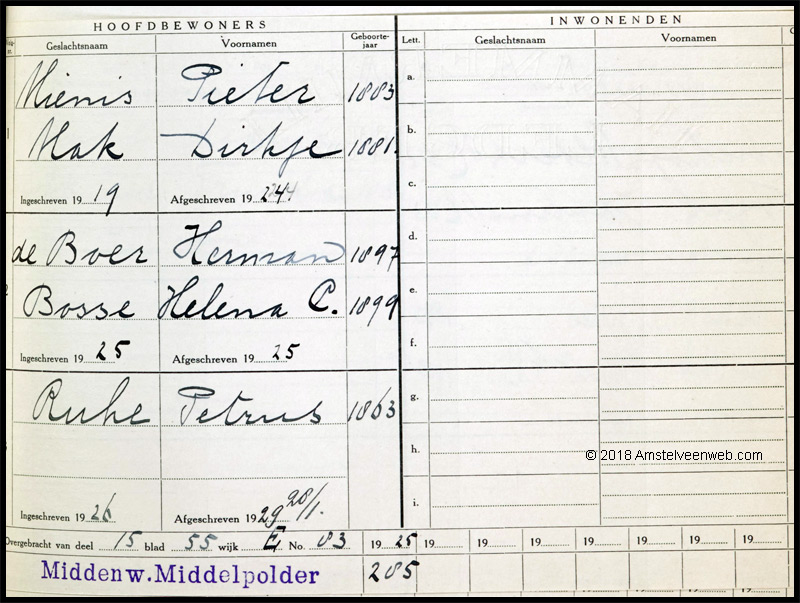 HOOFDBEWONERS
INWONENDEN
Geslachtsnaam Voornamen Geboorte-jaar Lett. Geslachtsnaam Voornamen
Mienis Pieter 1883 a.
Mak Dirkje 1881. b.
Ingeschreven 19 19 Afgeschreven 19 24 c.
de Boer Herman 1897 d.
Bosse Helena C. 1899 e.
Ingeschreven 19 25 Afgeschreven 19 25 f.
Ruhe Petrus 1863 g.
© 2018 Amstelveenweb.com
h.
Ingeschreven 19 26 Afgeschreven 19 29 28/1. i.
Overgebracht van deel 15 blad 55 wijk E No. 83 19 25 19 19 19 19 19 19 19
Middenw. Middelpolder 285